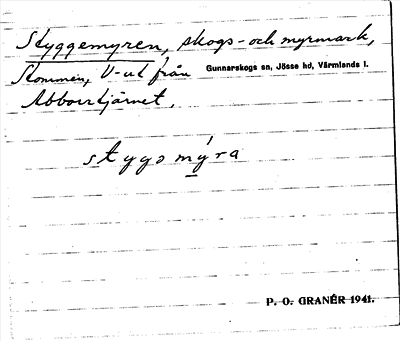 Styggemyren, skogs- och myrmark,
Stommen, V-ut från Gunnarskogs sn, Jösse hd, Värmlands l.
Abborrtjärnet.
stygo mýra
P. O. GRANÉR 1941.